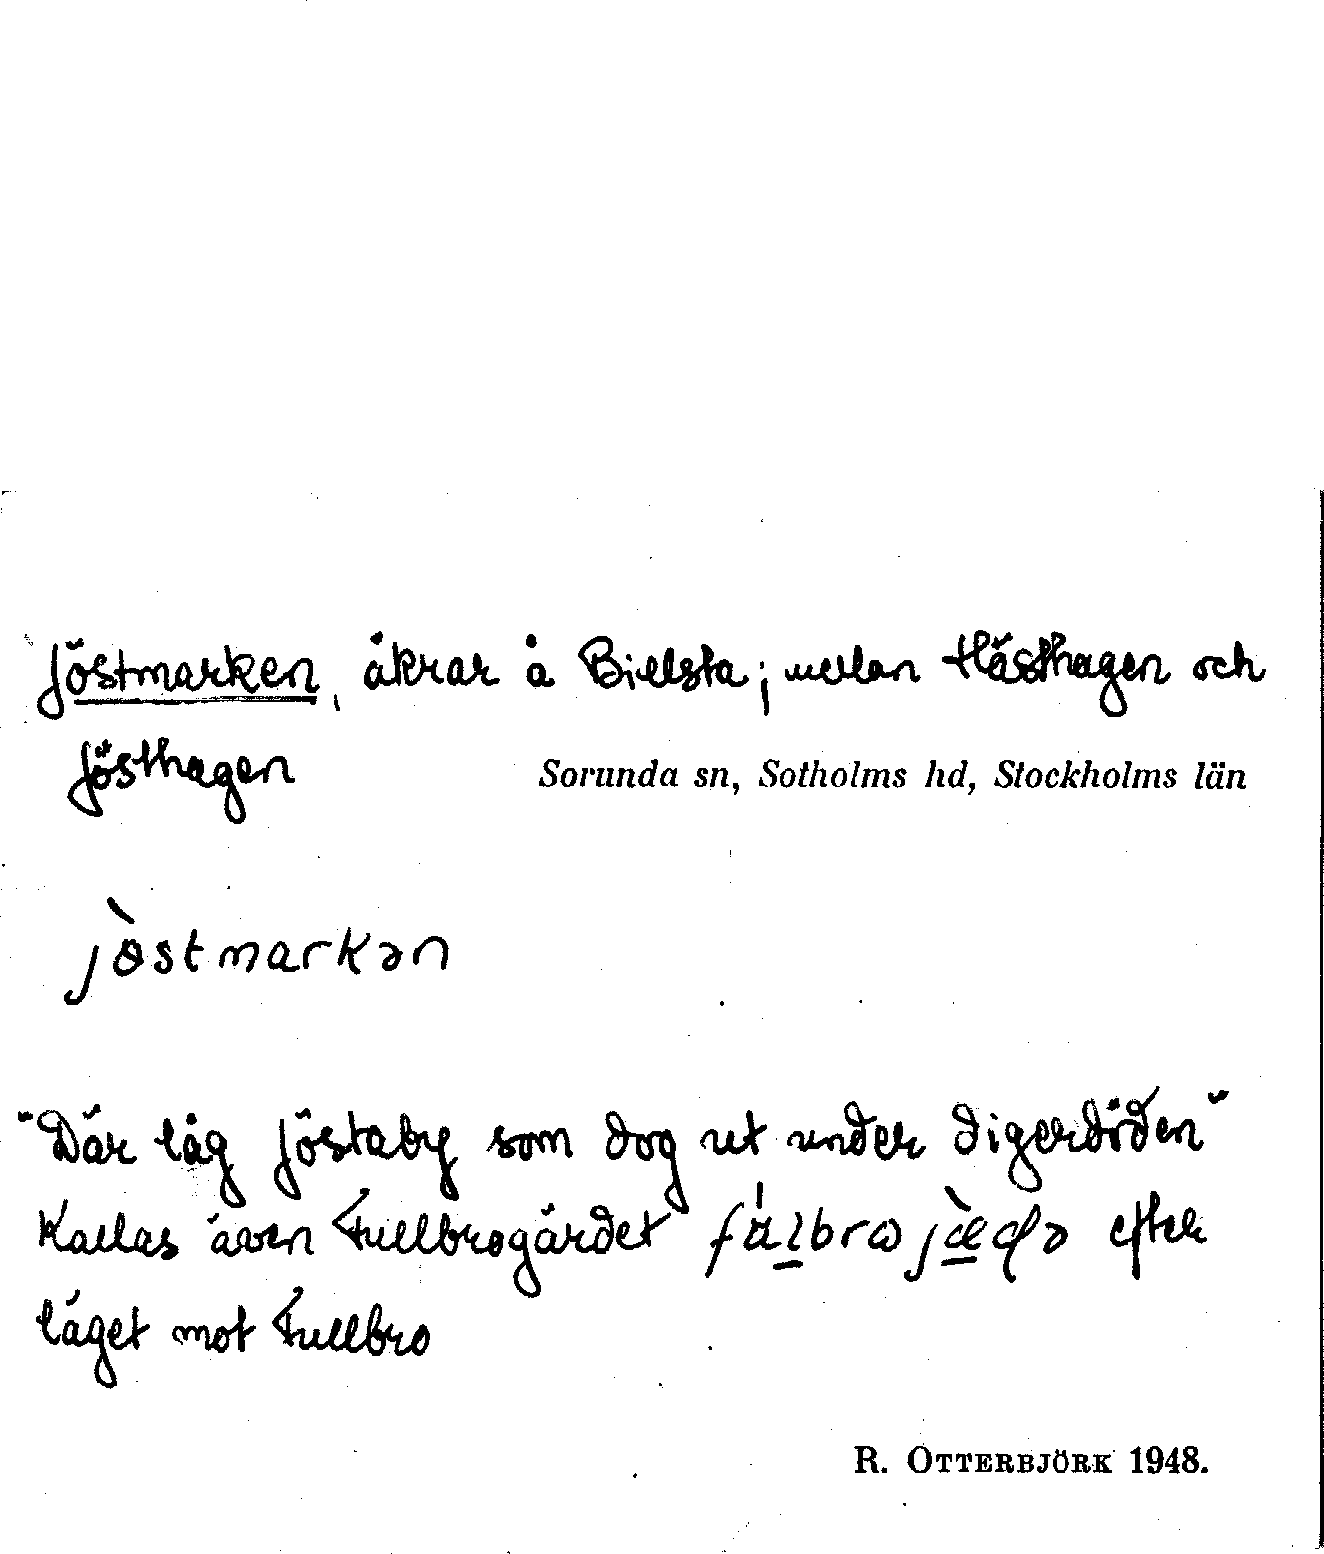 Jöstmarken, åkrar å Billsta; mellan Hästhagen och
Jösthagen
Sorunda sn, Sotholms hd, Stockholms län
jòstmarkən
"Där låg Jöstaby som dog ut under digerdöden"
Kallas även Fullbrogärdet efter
läget mot Fullbro
R. OTTERBJÖRK 1948.